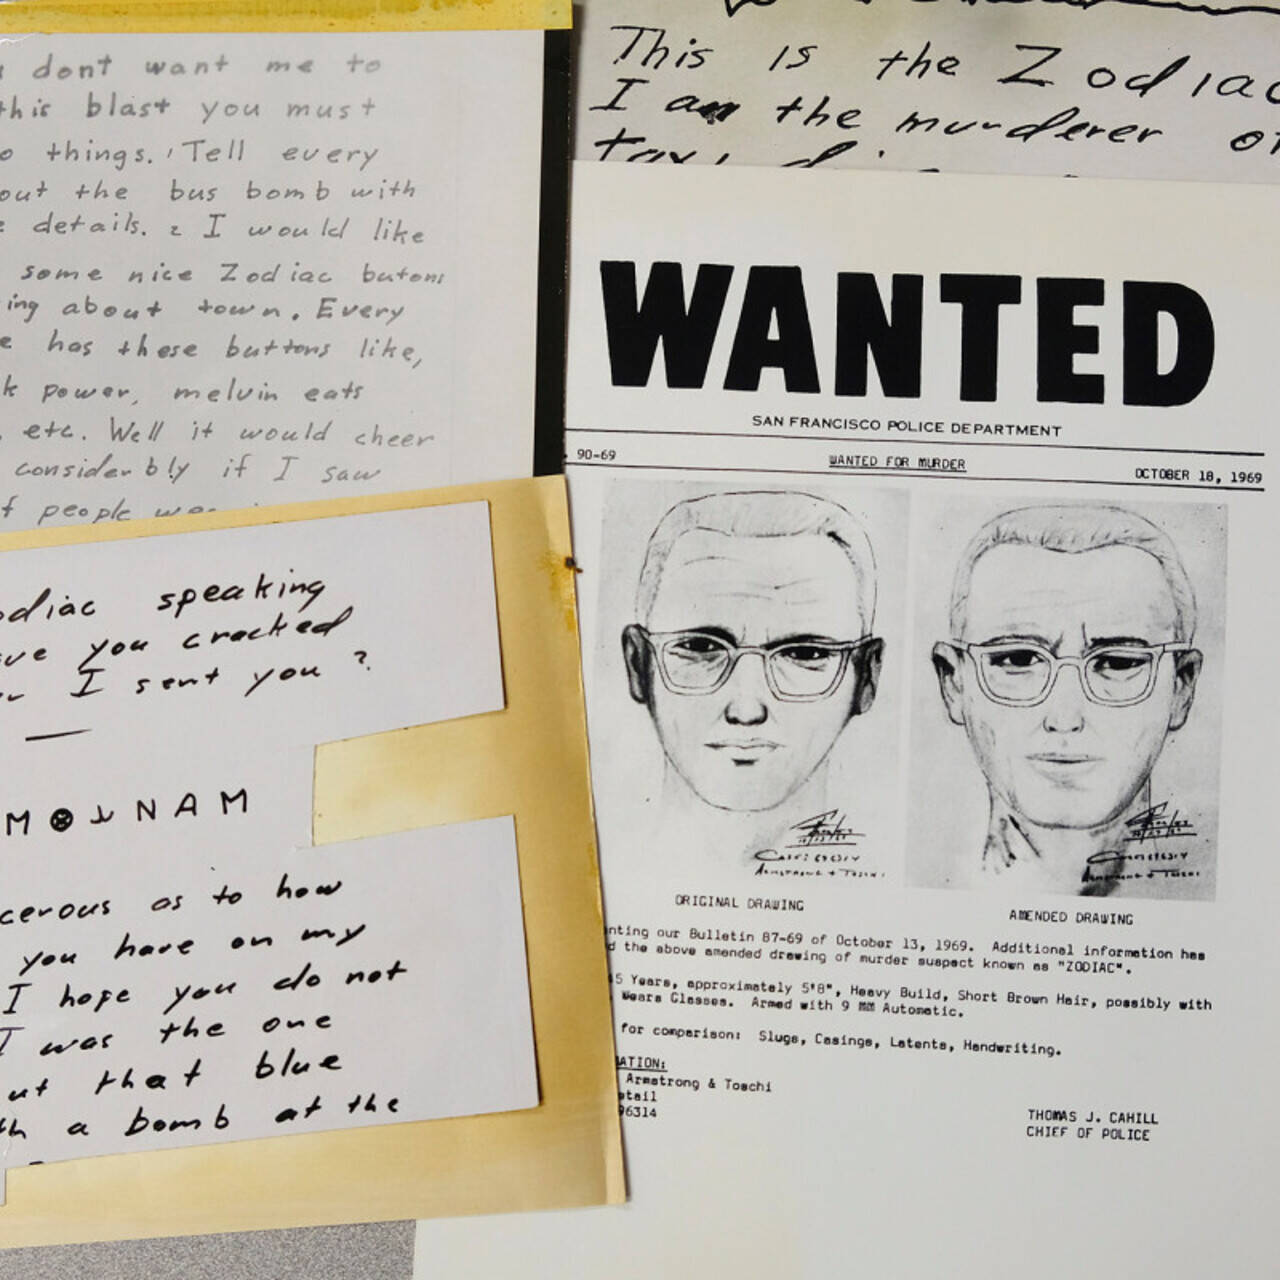 dont want me to
this blast you must
things. Tell every
out the bus bomb with
details. 2 I would like
some nice Zodiac butons
ing about town. Every
e has these buttons like,
k power, melvin eats
, etc. Well it would cheer
considerbly if I saw
f people
odiac speaking
ave you cracked
I sent you ?
NAM
cerous as to how
you have on my
I hope you do not
I was the one
ut that blue
th a bomb at the
This is the Zodiac
I am the murderer of
WANTED
SAN FRANCISCO POLICE DEPARTMENT
90-69 WANTED FOR MURDER OCTOBER 18, 1969
ARMSTRONG & TOSCHI
ARMSTRONG & TOSCHI
ORIGINAL DRAWING AMENDED DRAWING
nting our Bulletin 87-69 of October 13, 1969. Additional information has
d the above amended drawing of murder suspect known as "ZODIAC".
45 Years, approximately 5'8", Heavy Build, Short Brown Hair, possibly with
Wears Glasses. Armed with 9 MM Automatic.
for comparison: Slugs, Casings, Latents, Handwriting.
ATION:
Armstrong & Toschi
etail
96314
THOMAS J. CAHILL
CHIEF OF POLICE